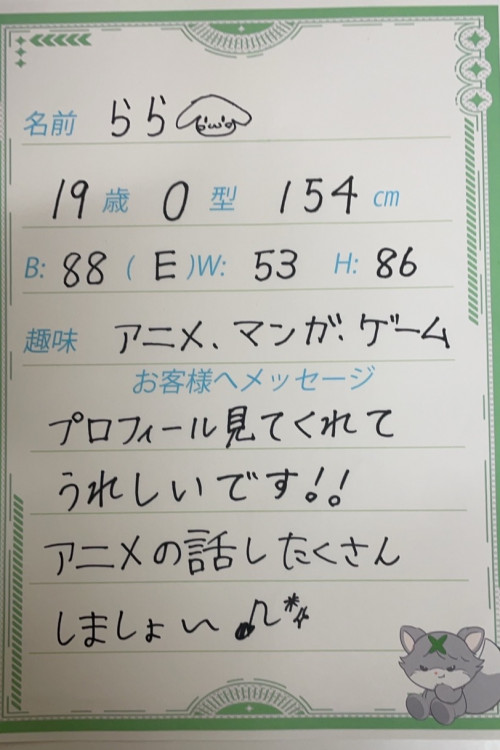 名前 らら
19歳 O型 154cm
B: 88 (E)W: 53 H: 86
趣味 アニメ、マンガ、ゲーム
お客様へメッセージ
プロフィール見てくれて
うれしいです!!
アニメの話したくさん
しましょい♪